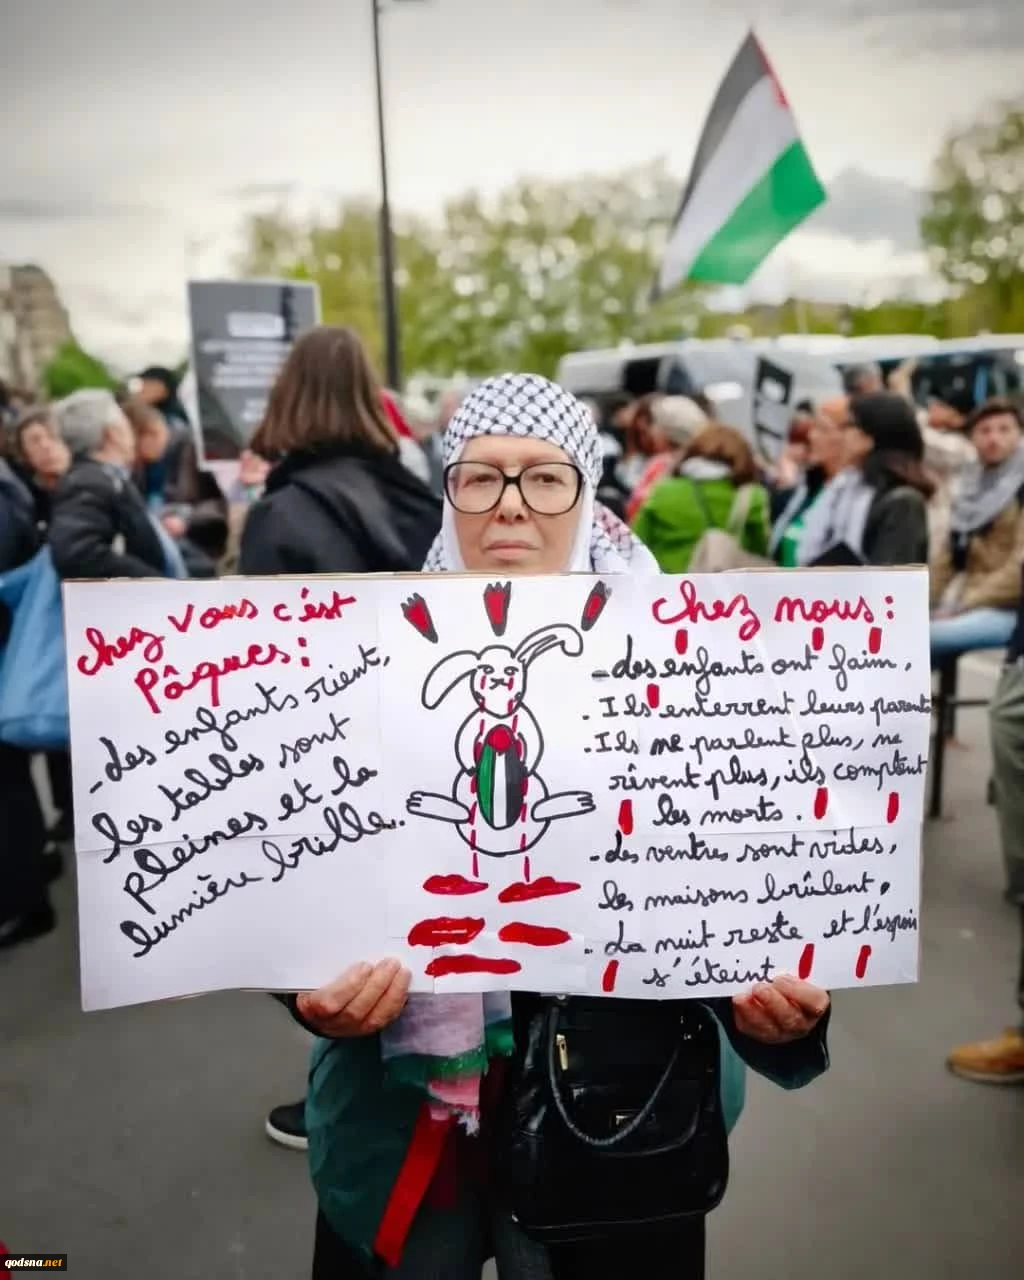 chez vous c'ést
Pâques:
-des enfants rient,
les tables sont
pleines et la
lumière brille.
chez nous:
-des enfants ont faim,
.Ils enterrent leurs parents
.Ils ne parlent plus, ne
rêvent plus, ils comptent
les morts.
-des ventres sont vides,
les maisons brûlent,
.La nuit reste et l'éspoir
s'éteint
qodsna.net